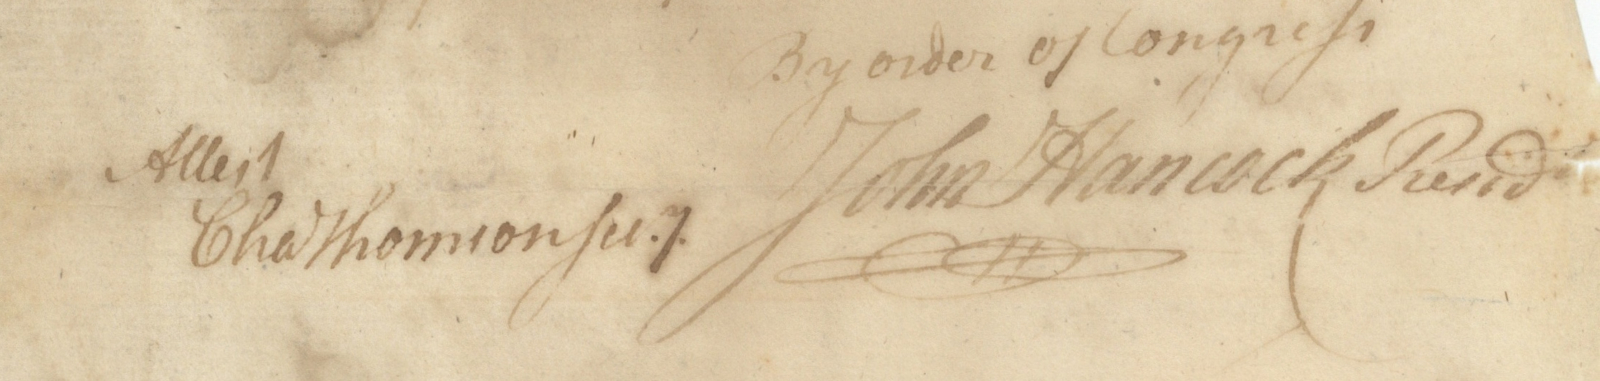 By order of Congress
John Hancock Presid
Attest
Cha Thomson secy.